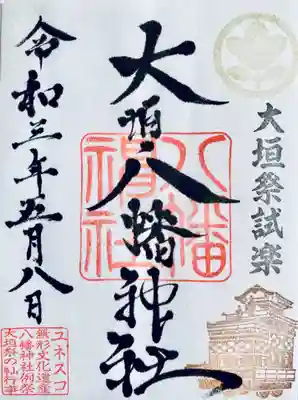 大垣祭試楽
大垣八幡神社
八幡神社
令和三年五月八日
ユネスコ
無形文化遺産
八幡神社例祭
大垣祭の𨋳行事